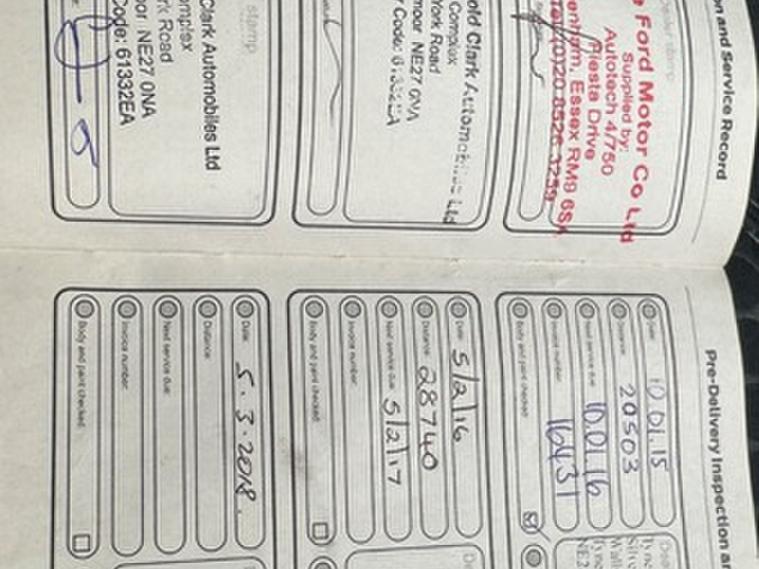 on and Service Record
Dealer stamp
Ford Motor Co Ltd
Supplied by:
Autotech 4/750
Fiesta Drive
enham, Essex RM9 6SA
Tel (0)20 8526 3259
old Clark Automobiles Ltd
Complex
York Road
moor NE27 0NA
Code: 61332EA
stamp
Clark Automobiles Ltd
omplex
rk Road
oor NE27 0NA
Code: 61332EA
Pre-Delivery Inspection an
Date: 10.01.15
Distance: 20503
Next service due: 10.01.16
Invoice number: 16431
Body and paint checked:
Date: 5/2/16
Distance: 28740
Next service due: 5/2/17
Invoice number:
Body and paint checked:
Date: 5.3.2018.
Distance:
Next service due:
Invoice number:
Body and paint checked:
Dea
Tyne
Silve
Wall
Tyne
NE2
De